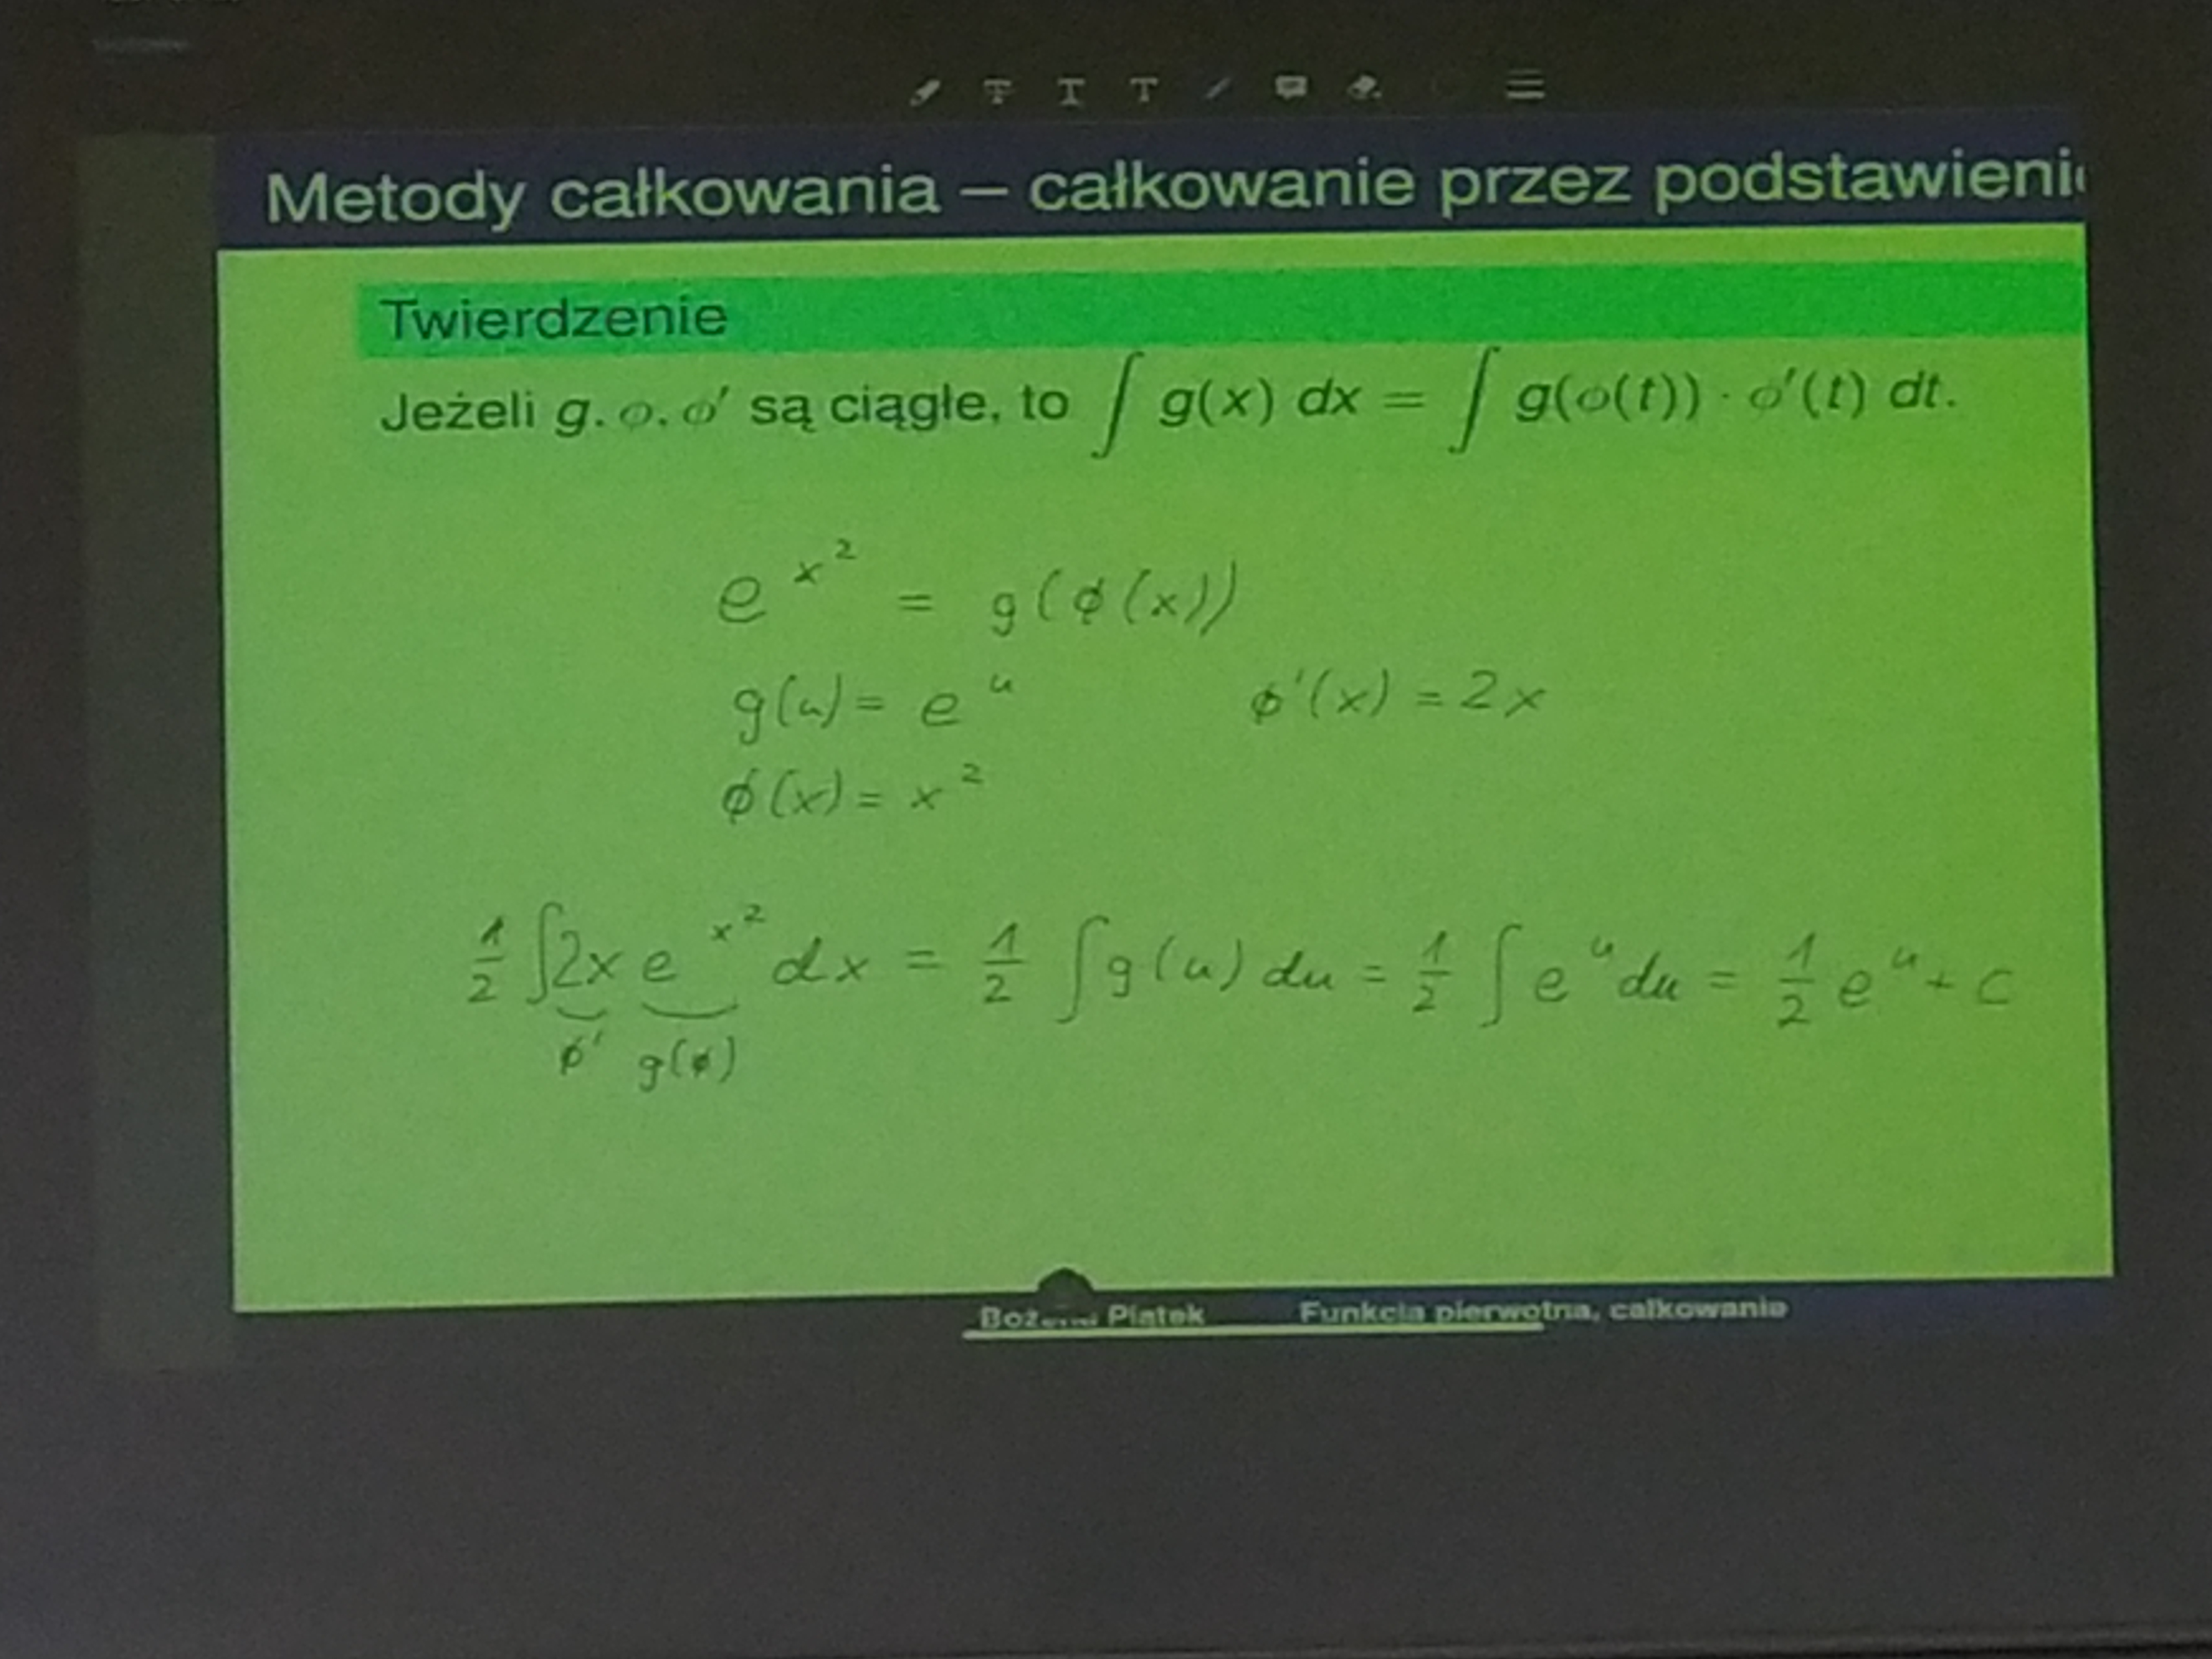 Metody całkowania – całkowanie przez podstawieni
Twierdzenie
Jeżeli g, φ, φ′ są ciągłe, to ∫ g(x) dx = ∫ g(φ(t)) · φ′(t) dt.
e^{x^2} = g(ϕ(x))
g(u) = e^u ϕ'(x) = 2x
ϕ(x) = x^2
1/2 ∫ 2x e^{x^2} dx = 1/2 ∫ g(u) du = 1/2 ∫ e^u du = 1/2 e^u + c
ϕ' g(ϕ)
Piątek Funkcja pierwotna, całkowanie